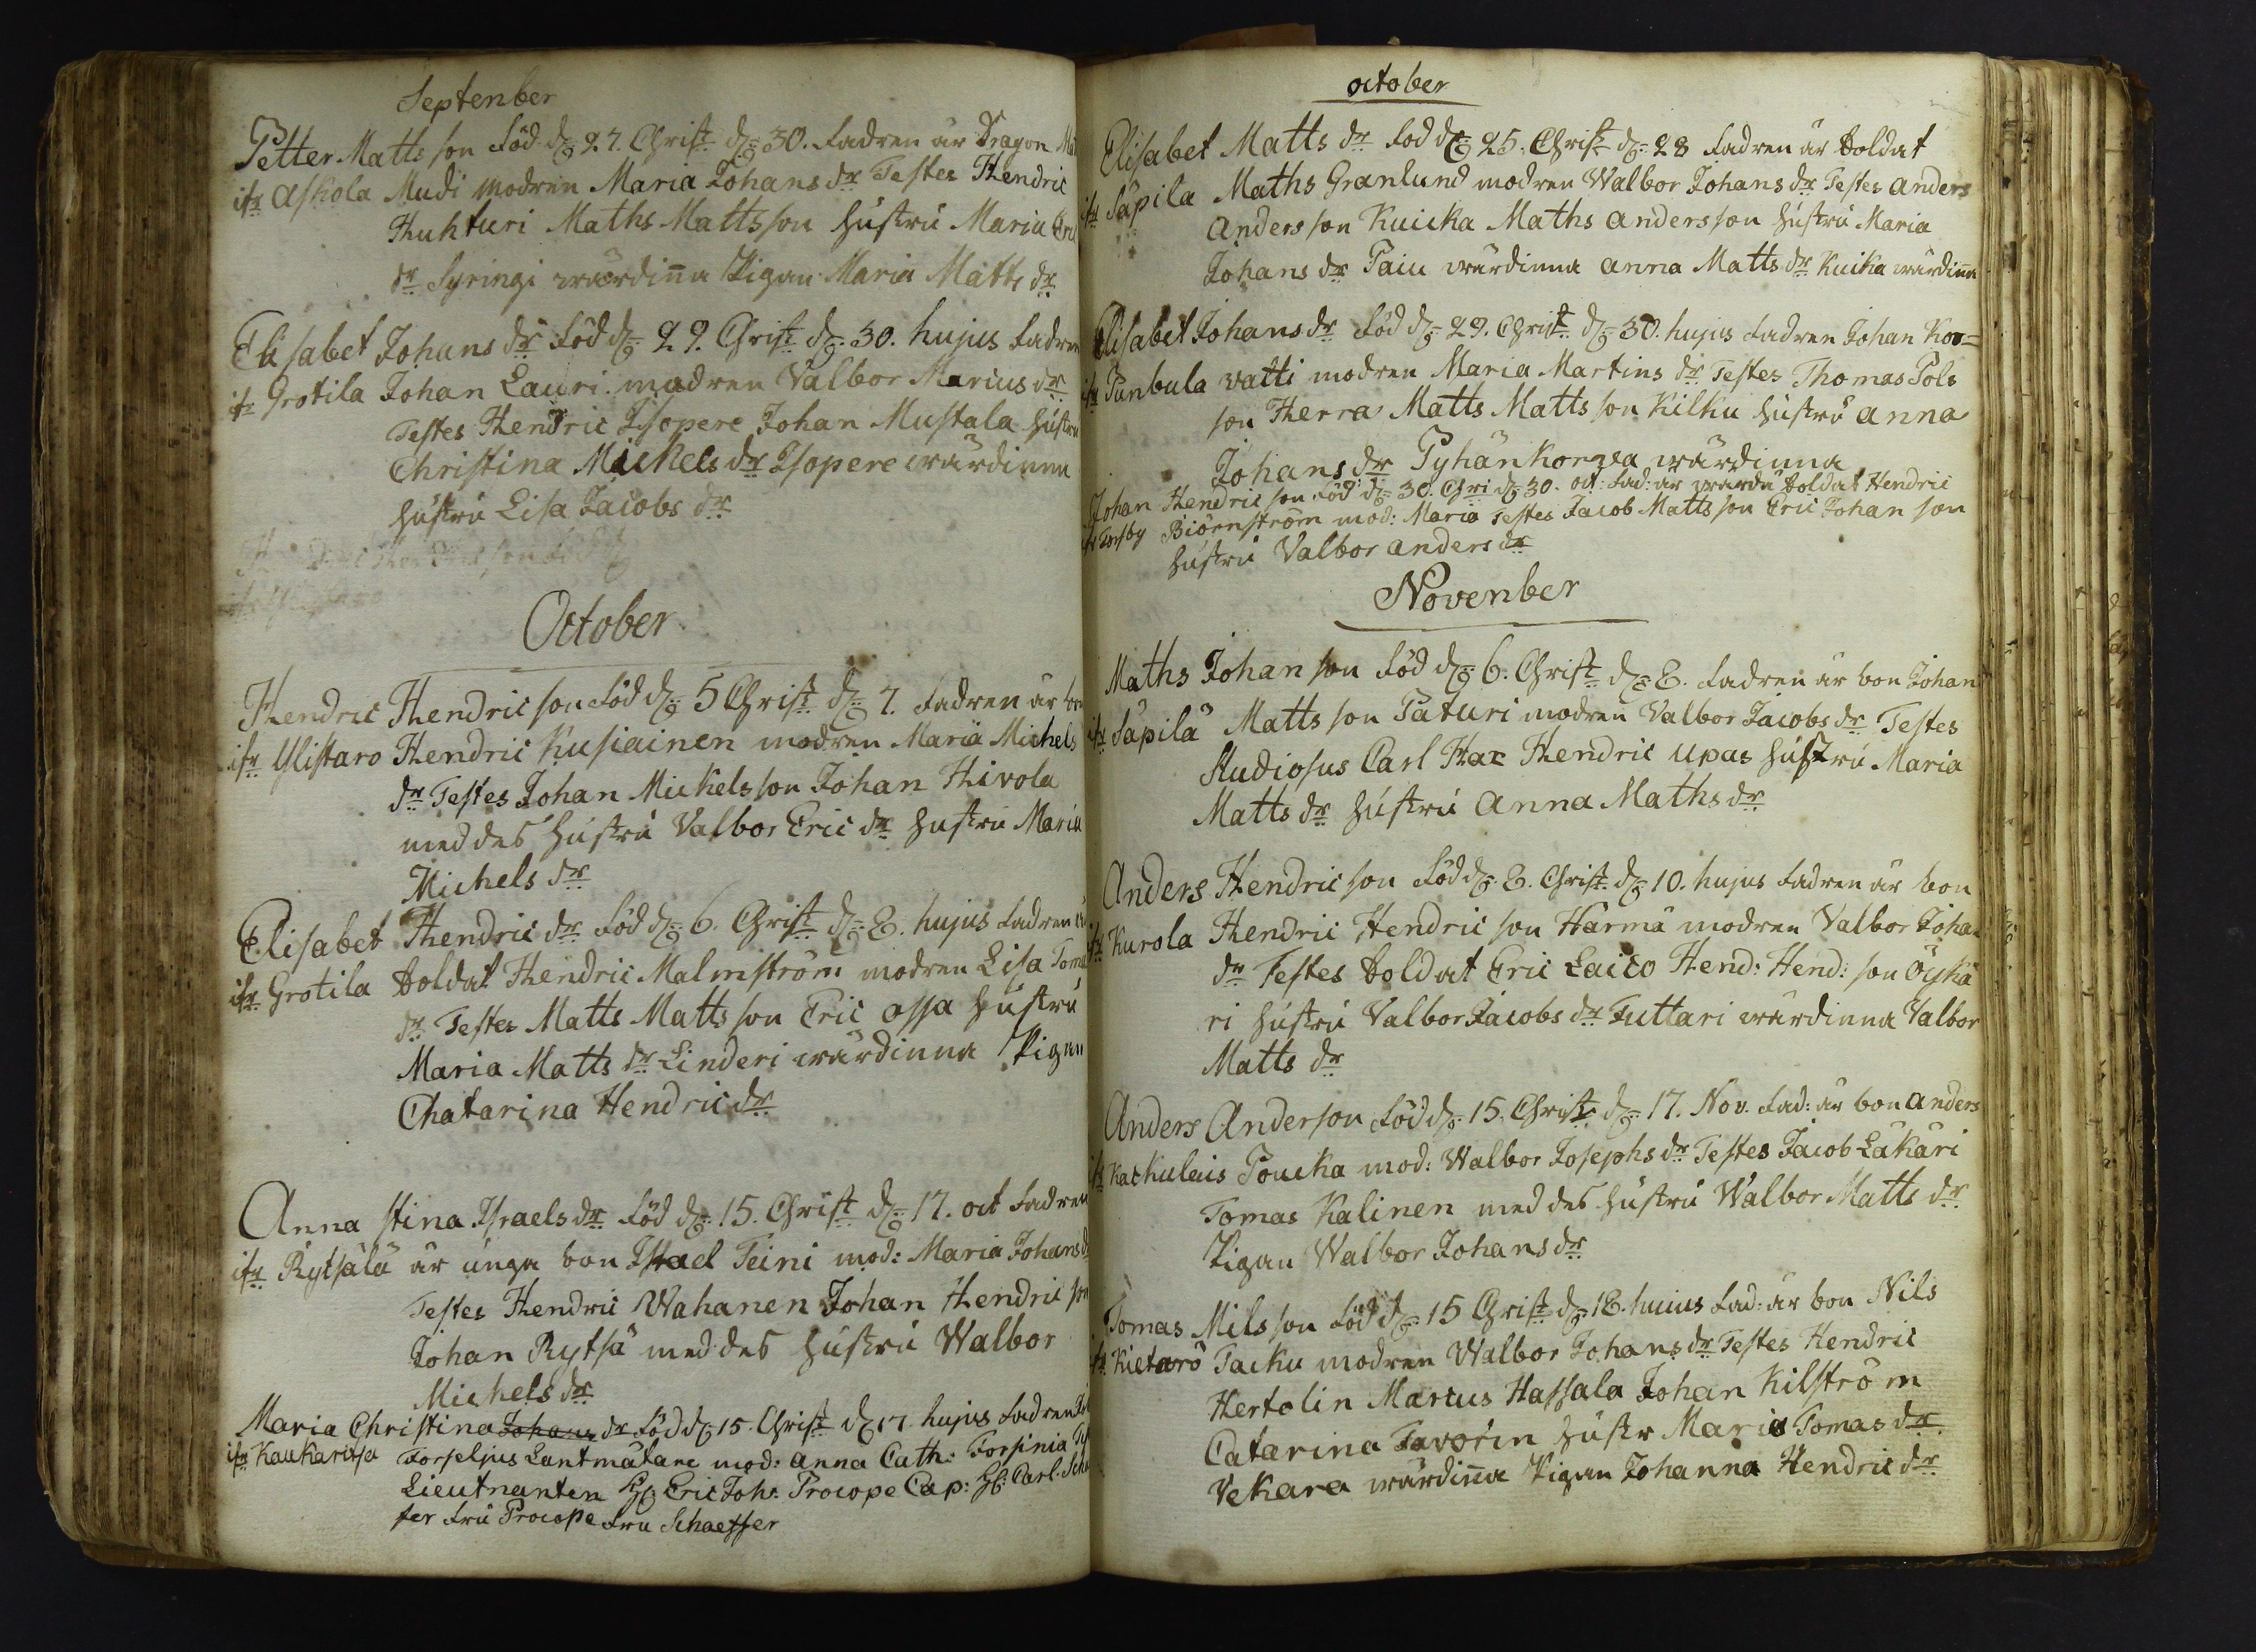 September
Petter Matts son Född dn 27. Christ dn 30. Fadren är Dragon
ifr Askola Mudi modren Maria Johans dr Testes Hendric
Huhturi Maths Matts son hustru Maria
dr Syringi wärdiña Pigan Maria Matts dr
Elisabet Johans dr Född dn 29. Christ dn 30. hujus Fadren
ifr Grotila Johan Lauri modren Valbor Marcus dr
Testes Hendric Isopere Johan Mustala hustru
Christina Mickels dr Isopere wärdinna
hustru Lisa Jacobs dr
October
Hendric Hendric son Född dn 5 Christ dn 7. Fadren är bon
ifr Ylistaro Hendric Kusiainen modren Maria Michels
dr Testes Johan Mickels son Johan Hivola
med des hustru Valbor Eric dr hustru Maria
Michels dr
Elisabet Hendric dr Född dn 6. Christ dn 8. hujus Fadren är
ifr Grotila Soldat Hendric Malmström modren Lisa
dr Testes Matts Matts son Eric assa hustru
Maria Matts dr Linderi wärdinna Pigan
Chatarina Hendric dr
Anna Stina Israels dr Född dn 15. Christ dn 17. oct Fadren
ifr Rytsälä är unga bon Israel Teini mod: Maria Johans dr
Testes Hendric Wahanen Johan Hendric son
Johan Rytsä med des hustru Walbor
Michels dr
Maria Christina Johans dr Född dn 15. Christ dn 17. hujus Fadren
ifr Kaukaritsa Forseljus Lantmätare mod: Anna Cath: Forsinia
Lieutnanten Hr Eric Joh: Procope Cap: Hr: Carl
fer Fru Procope Fru Schaeffer
october
Elisabet Matts dr Född dn 25. Christ dn 28 Fadren är Soldat
ifr Säpilä Maths Granlund modren Walbor Johans dr Testes Anders
Anders son Kuicka Maths Anders son hustru Maria
Johans dr Paiu wärdinna Anna Matts dr Kuika wärdiña
Elisabet Johans dr Född dn 29. Christ dn 30. hujus Fadren Johan Kor=
ifr Panbula vatti modren Maria Martins dr Testes Thomas Pols
son Herra Matts Matts son Kilku hustru Anna
Johans dr Pyhänkorva wärdinna
Johan Hendric son Född dn 30. Chri dn 30. oct: Fad: är Soldat Hendric
Biörnström mod: Maria Testes Jacob Matts son Eric Johan son
hustru Valbor Anders dr
November
Maths Johan son Född dn 6. Christ dn 8. Fadren är bon Johan
ifr Säpilä Matts son Paturi modren Valbor Jacobs dr Testes
Studiosus Carl Hendric Upas hustru Maria
Matts dr hustru Anna Maths dr
Anders Hendric son Född dn 8. Christ dn 10. hujus Fadren är bon
ifr Kurola Hendric Hendric son Harmä modren Valbor Johan
dr Testes Soldat Eric Laico Hend: Hend: son Öykä
ri hustru Valbor Jacobs dr Tuttari wärdinna Valbor
Matts dr
Anders Anderson Född dn 15. Christ dn 17. Nov. Fad: är bon Anders
ifr Karkulais Poucka mod: Walbor Josephs dr Testes Jacob Läkäri
Tomas Kalinen med des hustru Walbor Matts dr
Pigan Walbor Johans dr
Tomas Nils son Född dn 15 Christ dn 18. huius Fad: är bon Nils
ifr Kietarö Tacku modren Walbor Johans dr Testes Hendric
Hertolin Marcus Hassala Johan Kilström
Catarina Favorin hustr Maria Tomas dr
Vekara wärdiña Pigan Johanna Hendric dr